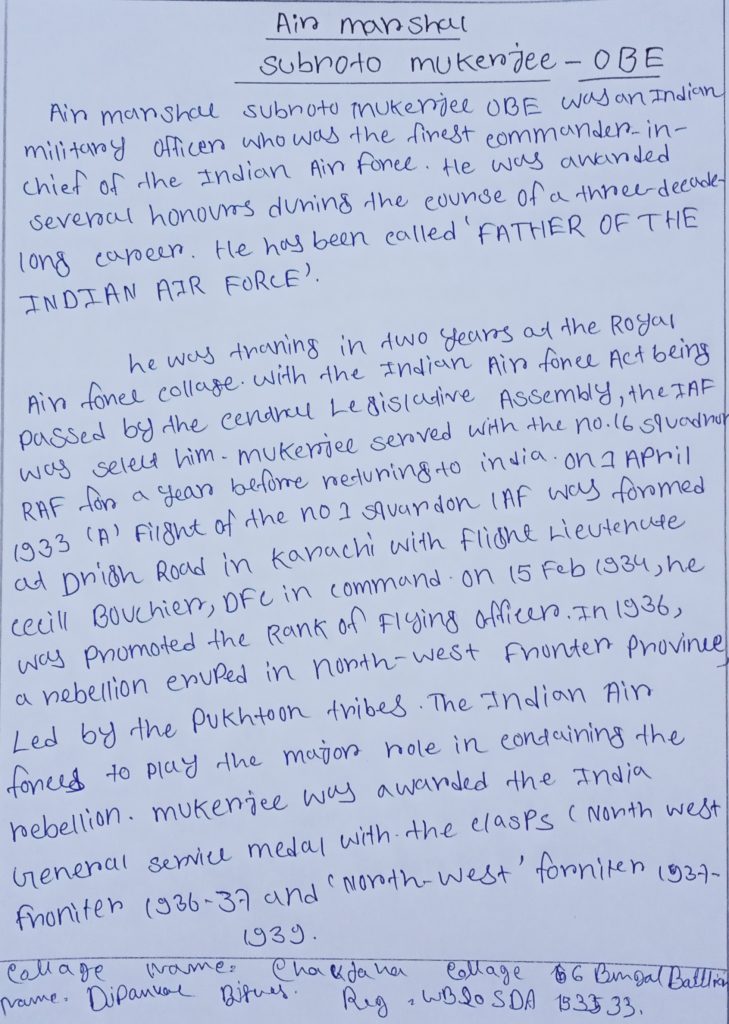 Air marshal
subroto mukerjee - OBE
Air marshal subroto mukerjee OBE was an Indian
military officer who was the finest commander-in-
chief of the Indian Air force. He was awarded
several honours during the course of a three-decade-
long career. He has been called 'FATHER OF THE
INDIAN AIR FORCE'.
he was traning in two years at the Royal
Air force collage. with the Indian Air force Act being
passed by the central Legislative Assembly, the IAF
was selelt him. mukerjee served with the no.16 squadron
RAF for a year before returing to india. on 1 April
1933 'A' Filght of the no 1 squardon IAF was formed
at Drigh Road in Karachi with flight Lieutenate
cecill Bouchier, DFC in command. on 15 Feb 1934, he
was promoted the Rank of Flying officer. In 1936,
a rebellion eruped in north-west Fronter province
Led by the Pukhtoon tribes. The Indian Air
forces to play the major role in containing the
rebellion. mukerjee was awarded the India
General service medal with the clasps ( North west
froniter 1936-37 and 'North-west' forniter 1937-
1939.
collage name: Chakdaha collage 6 Bengal Battlion
name. Dipankar Biswes. Reg. WB20 SDA 153533.